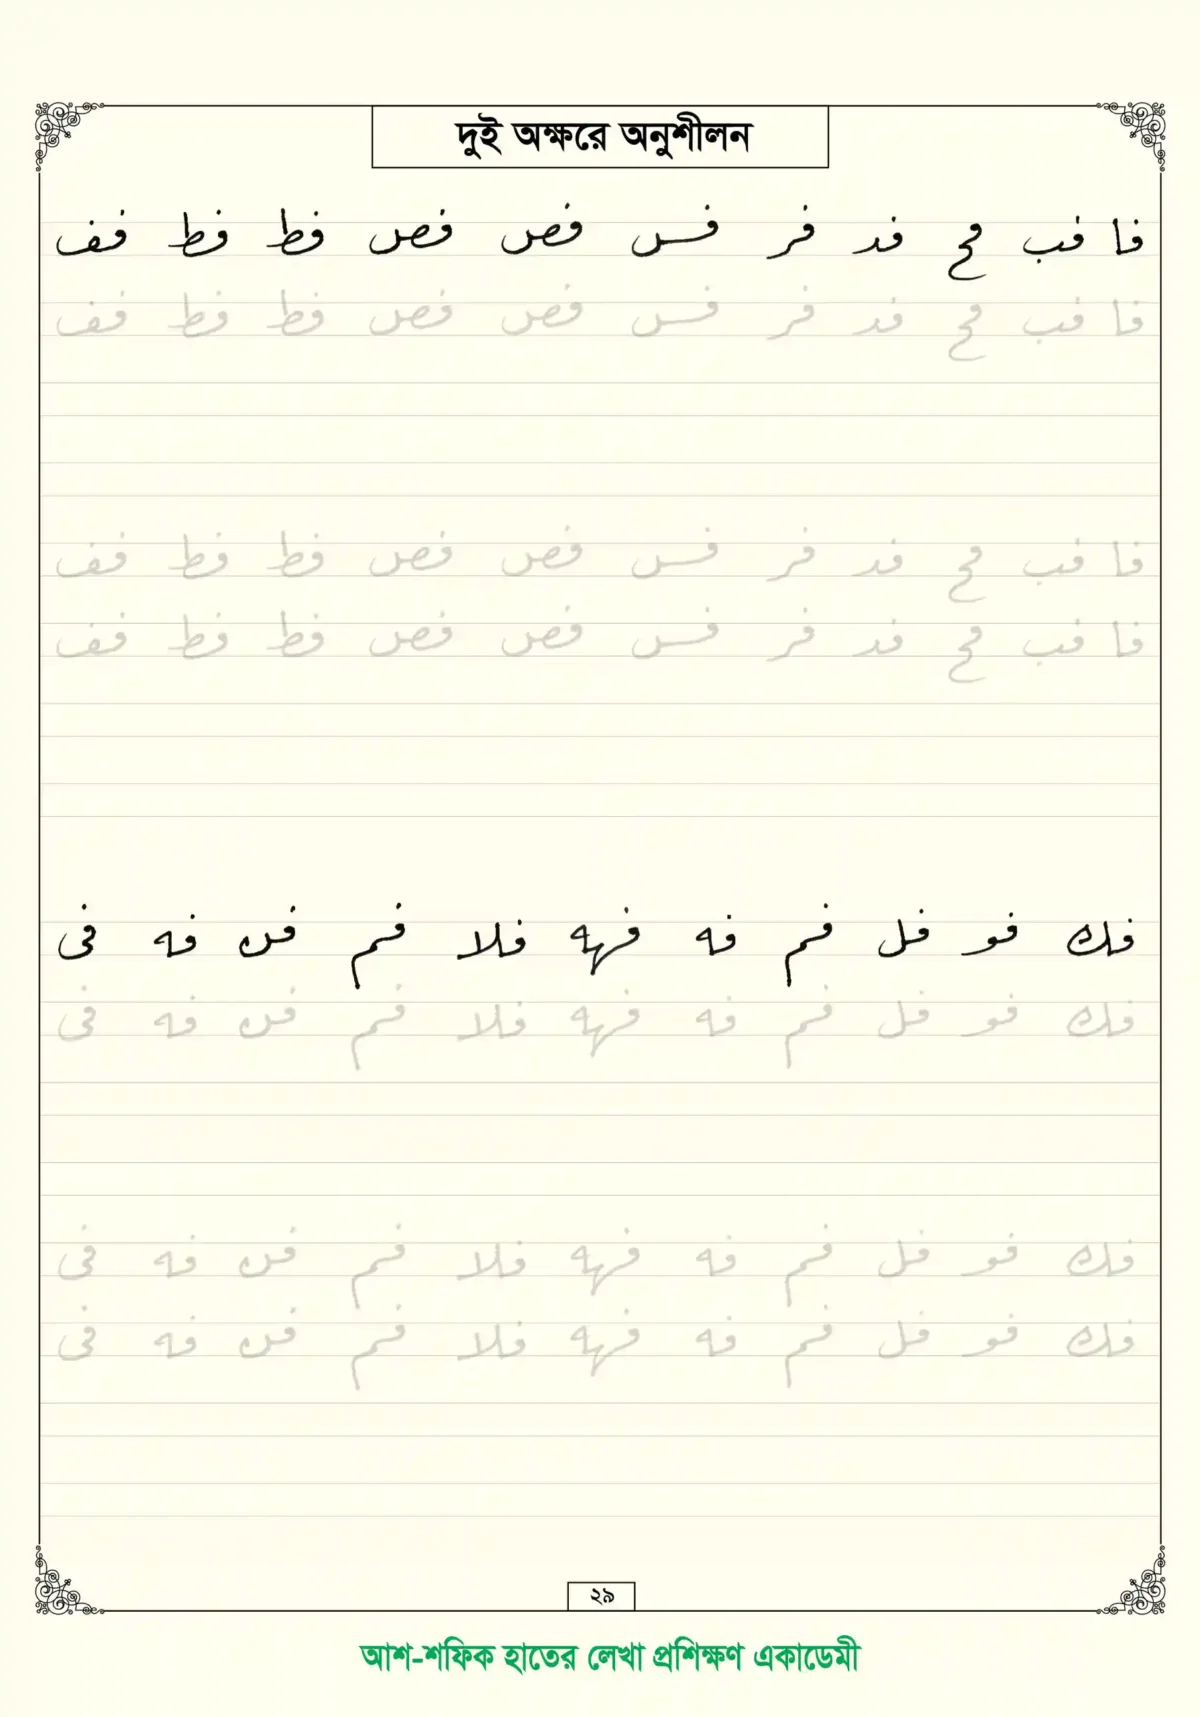 দুই অক্ষরে অনুশীলন
فا فب فح فد فر فس فص فص فط فط فف
فا فب فح فد فر فس فص فص فط فط فف
فا فب فح فد فر فس فص فص فط فط فف
فا فب فح فد فر فس فص فص فط فط فف
فك فو فل فم فه فهه فلا فم فن فه فى
فك فو فل فم فه فهه فلا فم فن فه فى
فك فو فل فم فه فهه فلا فم فن فه فى
فك فو فل فم فه فهه فلا فم فن فه فى
২৯
আশ-শফিক হাতের লেখা প্রশিক্ষণ একাডেমী